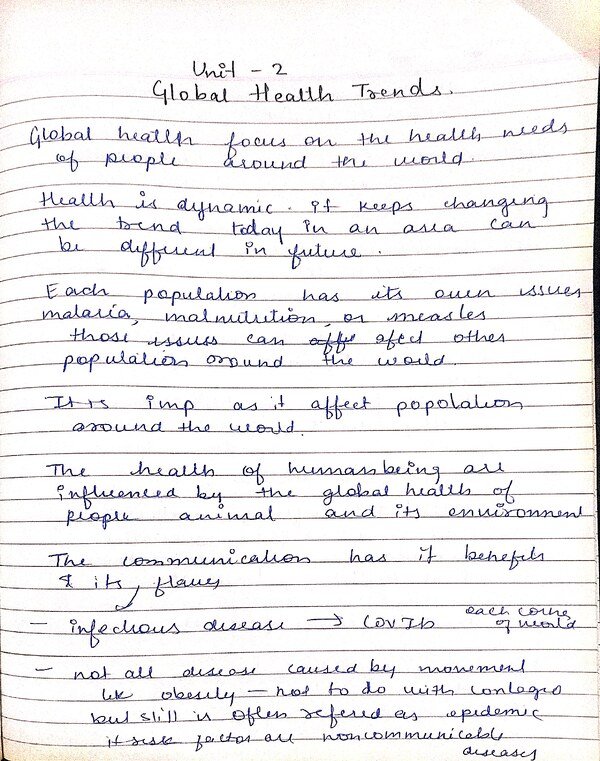 Unit - 2
Global Health Trends.
Global health focus on the health needs
of people around the world.
Health is dynamic. it keeps changing
the trend today in an area can
be different in future.
Each population has its own issues
malaria, malnutrition, or measles
those issues can afect other
population around the world.
It is imp as it affect popolation
around the world.
The health of humanbeing are
influenced by the global health of
people animal and its environment
The communication has it benefits
& its flaws
- infechious disease → COVID each corne
of world
- not all disease caused by movement
like obesity - not to do with contageo
but still is often refered as epidemic
it risk factor are noncommunicable
diseases